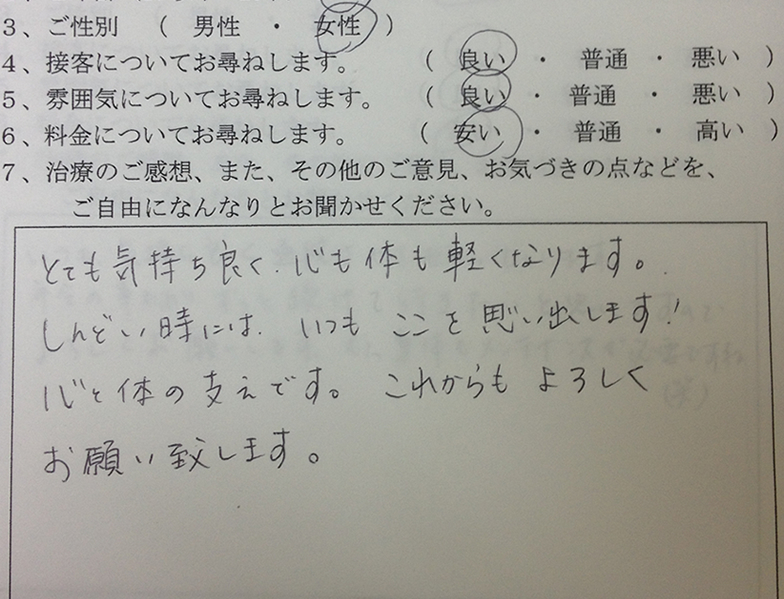 3、ご性別 （ 男性 ・ 女性 ）
4、接客についてお尋ねします。 （ 良い ・ 普通 ・ 悪い ）
5、雰囲気についてお尋ねします。 （ 良い ・ 普通 ・ 悪い ）
6、料金についてお尋ねします。 （ 安い ・ 普通 ・ 高い ）
7、治療のご感想、また、その他のご意見、お気づきの点などを、
ご自由になんなりとお聞かせください。
とても気持ち良く、心も体も軽くなります。
しんどい時には、いつも ここを思い出します!
心と体の支えです。これからも よろしく
お願い致します。